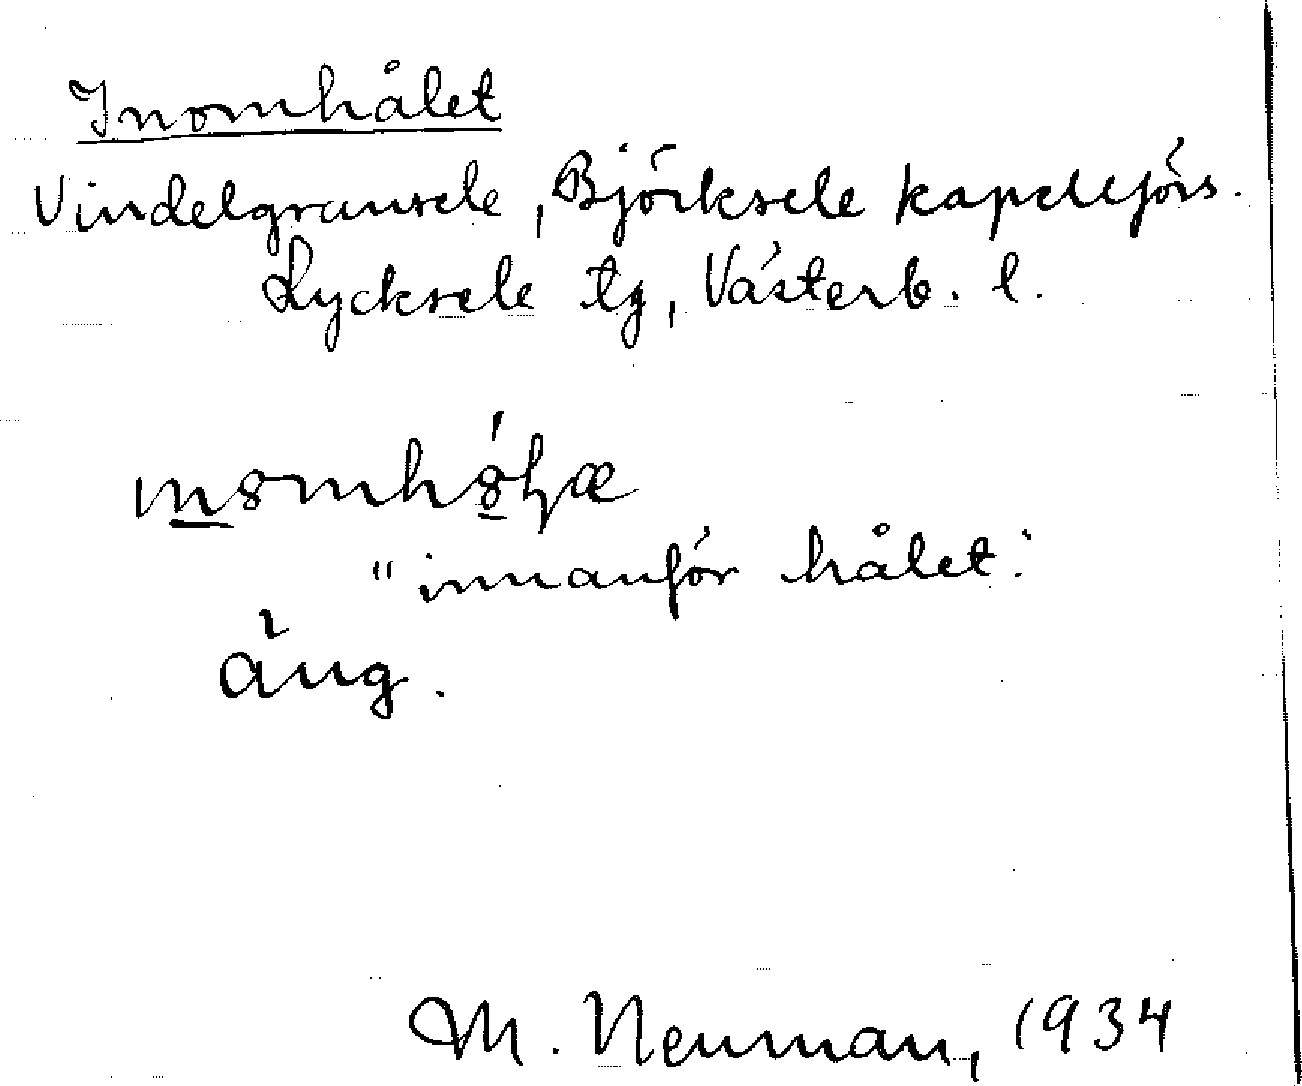 Inomhålet
Vindelgransele, Björksele kapellförs.
Lycksele tg, Västerb. l.
"innanför hålet".
äng.
M. Neuman, 1934